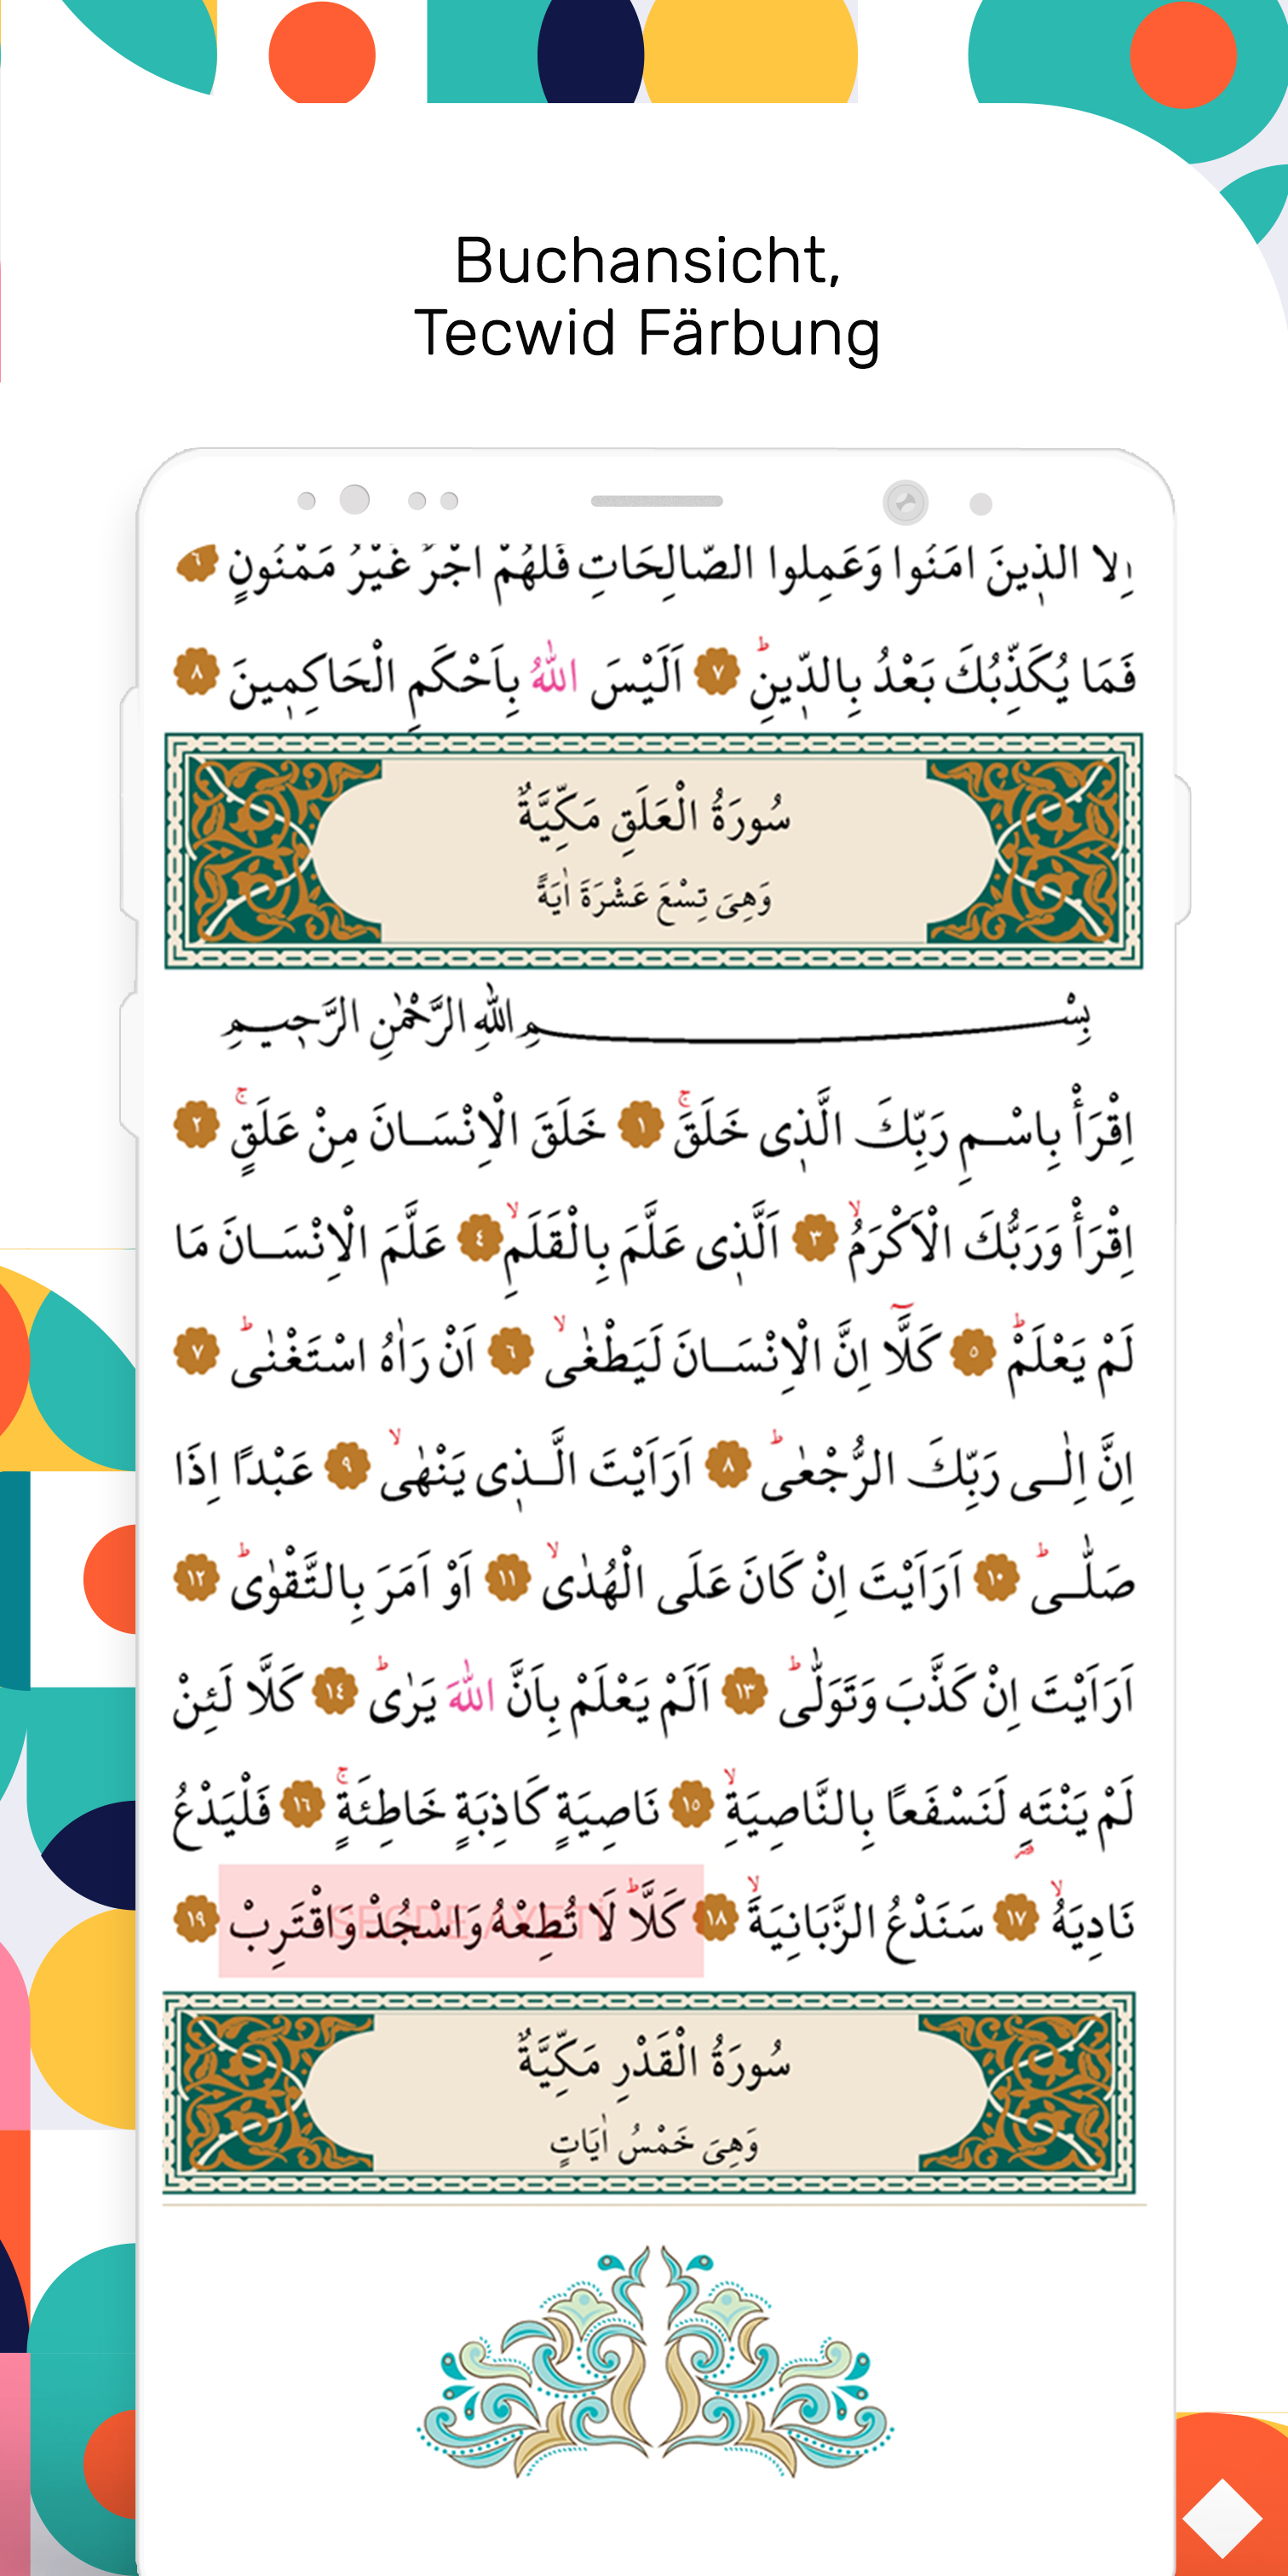 Buchansicht,
Tecwid Färbung
اِلا الذٖينَ اٰمَنُوا وَعَمِلوا الصّالِحَاتِ فَلَهُمْ اَجْرٌ غَيْرُ مَمْنُونٍ ٦
فَمَا يُكَذِّبُكَ بَعْدُ بِالدّٖينِؕ ٧ اَلَيْسَ اللّٰهُ بِاَحْكَمِ الْحَاكِمٖينَ ٨
سُورَةُ الْعَلَقِ مَكِّيَّةٌ
وَهِىَ تِسْعَ عَشْرَةَ اٰيَةً
بِسْمِ اللّٰهِ الرَّحْمٰنِ الرَّحٖيمِ
اِقْرَأْ بِاسْمِ رَبِّكَ الَّذٖى خَلَقَۚ ١ خَلَقَ الْاِنْسَانَ مِنْ عَلَقٍۚ ٢
اِقْرَأْ وَرَبُّكَ الْاَكْرَمُۙ ٣ اَلَّذٖى عَلَّمَ بِالْقَلَمِۙ ٤ عَلَّمَ الْاِنْسَانَ مَا
لَمْ يَعْلَمْؕ ٥ كَلَّٓا اِنَّ الْاِنْسَانَ لَيَطْغٰىۙ ٦ اَنْ رَاٰهُ اسْتَغْنٰىؕ ٧
اِنَّ اِلٰى رَبِّكَ الرُّجْعٰىؕ ٨ اَرَاَيْتَ الَّذٖى يَنْهٰىۙ ٩ عَبْدًا اِذَا
صَلّٰىؕ ١٠ اَرَاَيْتَ اِنْ كَانَ عَلَى الْهُدٰىۙ ١١ اَوْ اَمَرَ بِالتَّقْوٰىؕ ١٢
اَرَاَيْتَ اِنْ كَذَّبَ وَتَوَلّٰىؕ ١٣ اَلَمْ يَعْلَمْ بِاَنَّ اللّٰهَ يَرٰىؕ ١٤ كَلَّا لَئِنْ
لَمْ يَنْتَهِ لَنَسْفَعًا بِالنَّاصِيَةِۙ ١٥ نَاصِيَةٍ كَاذِبَةٍ خَاطِئَةٍۚ ١٦ فَلْيَدْعُ
نَادِيَهُۙ ١٧ سَنَدْعُ الزَّبَانِيَةَۙ ١٨ كَلَّاؕ لَا تُطِعْهُ وَاسْجُدْ وَاقْتَرِبْ ١٩
SECDE AYETİ
سُورَةُ الْقَدْرِ مَكِّيَّةٌ
وَهِىَ خَمْسُ اٰيَاتٍ